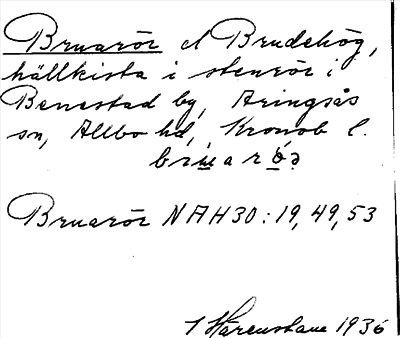 Bruarör el Brudehög,
hällkista i stenrör i
Benestad by, Aringsås
sn, Allbo hd, Kronob l.
Bruarör NAH30:19,49,53
1 Hårenstam 1936